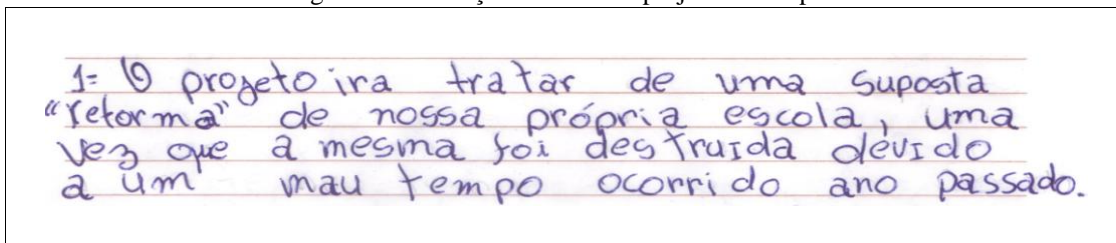 1- O projeto ira tratar de uma suposta
"reforma" de nossa própria escola, uma
vez que a mesma foi destruida devido
a um mau tempo ocorrido ano passado.